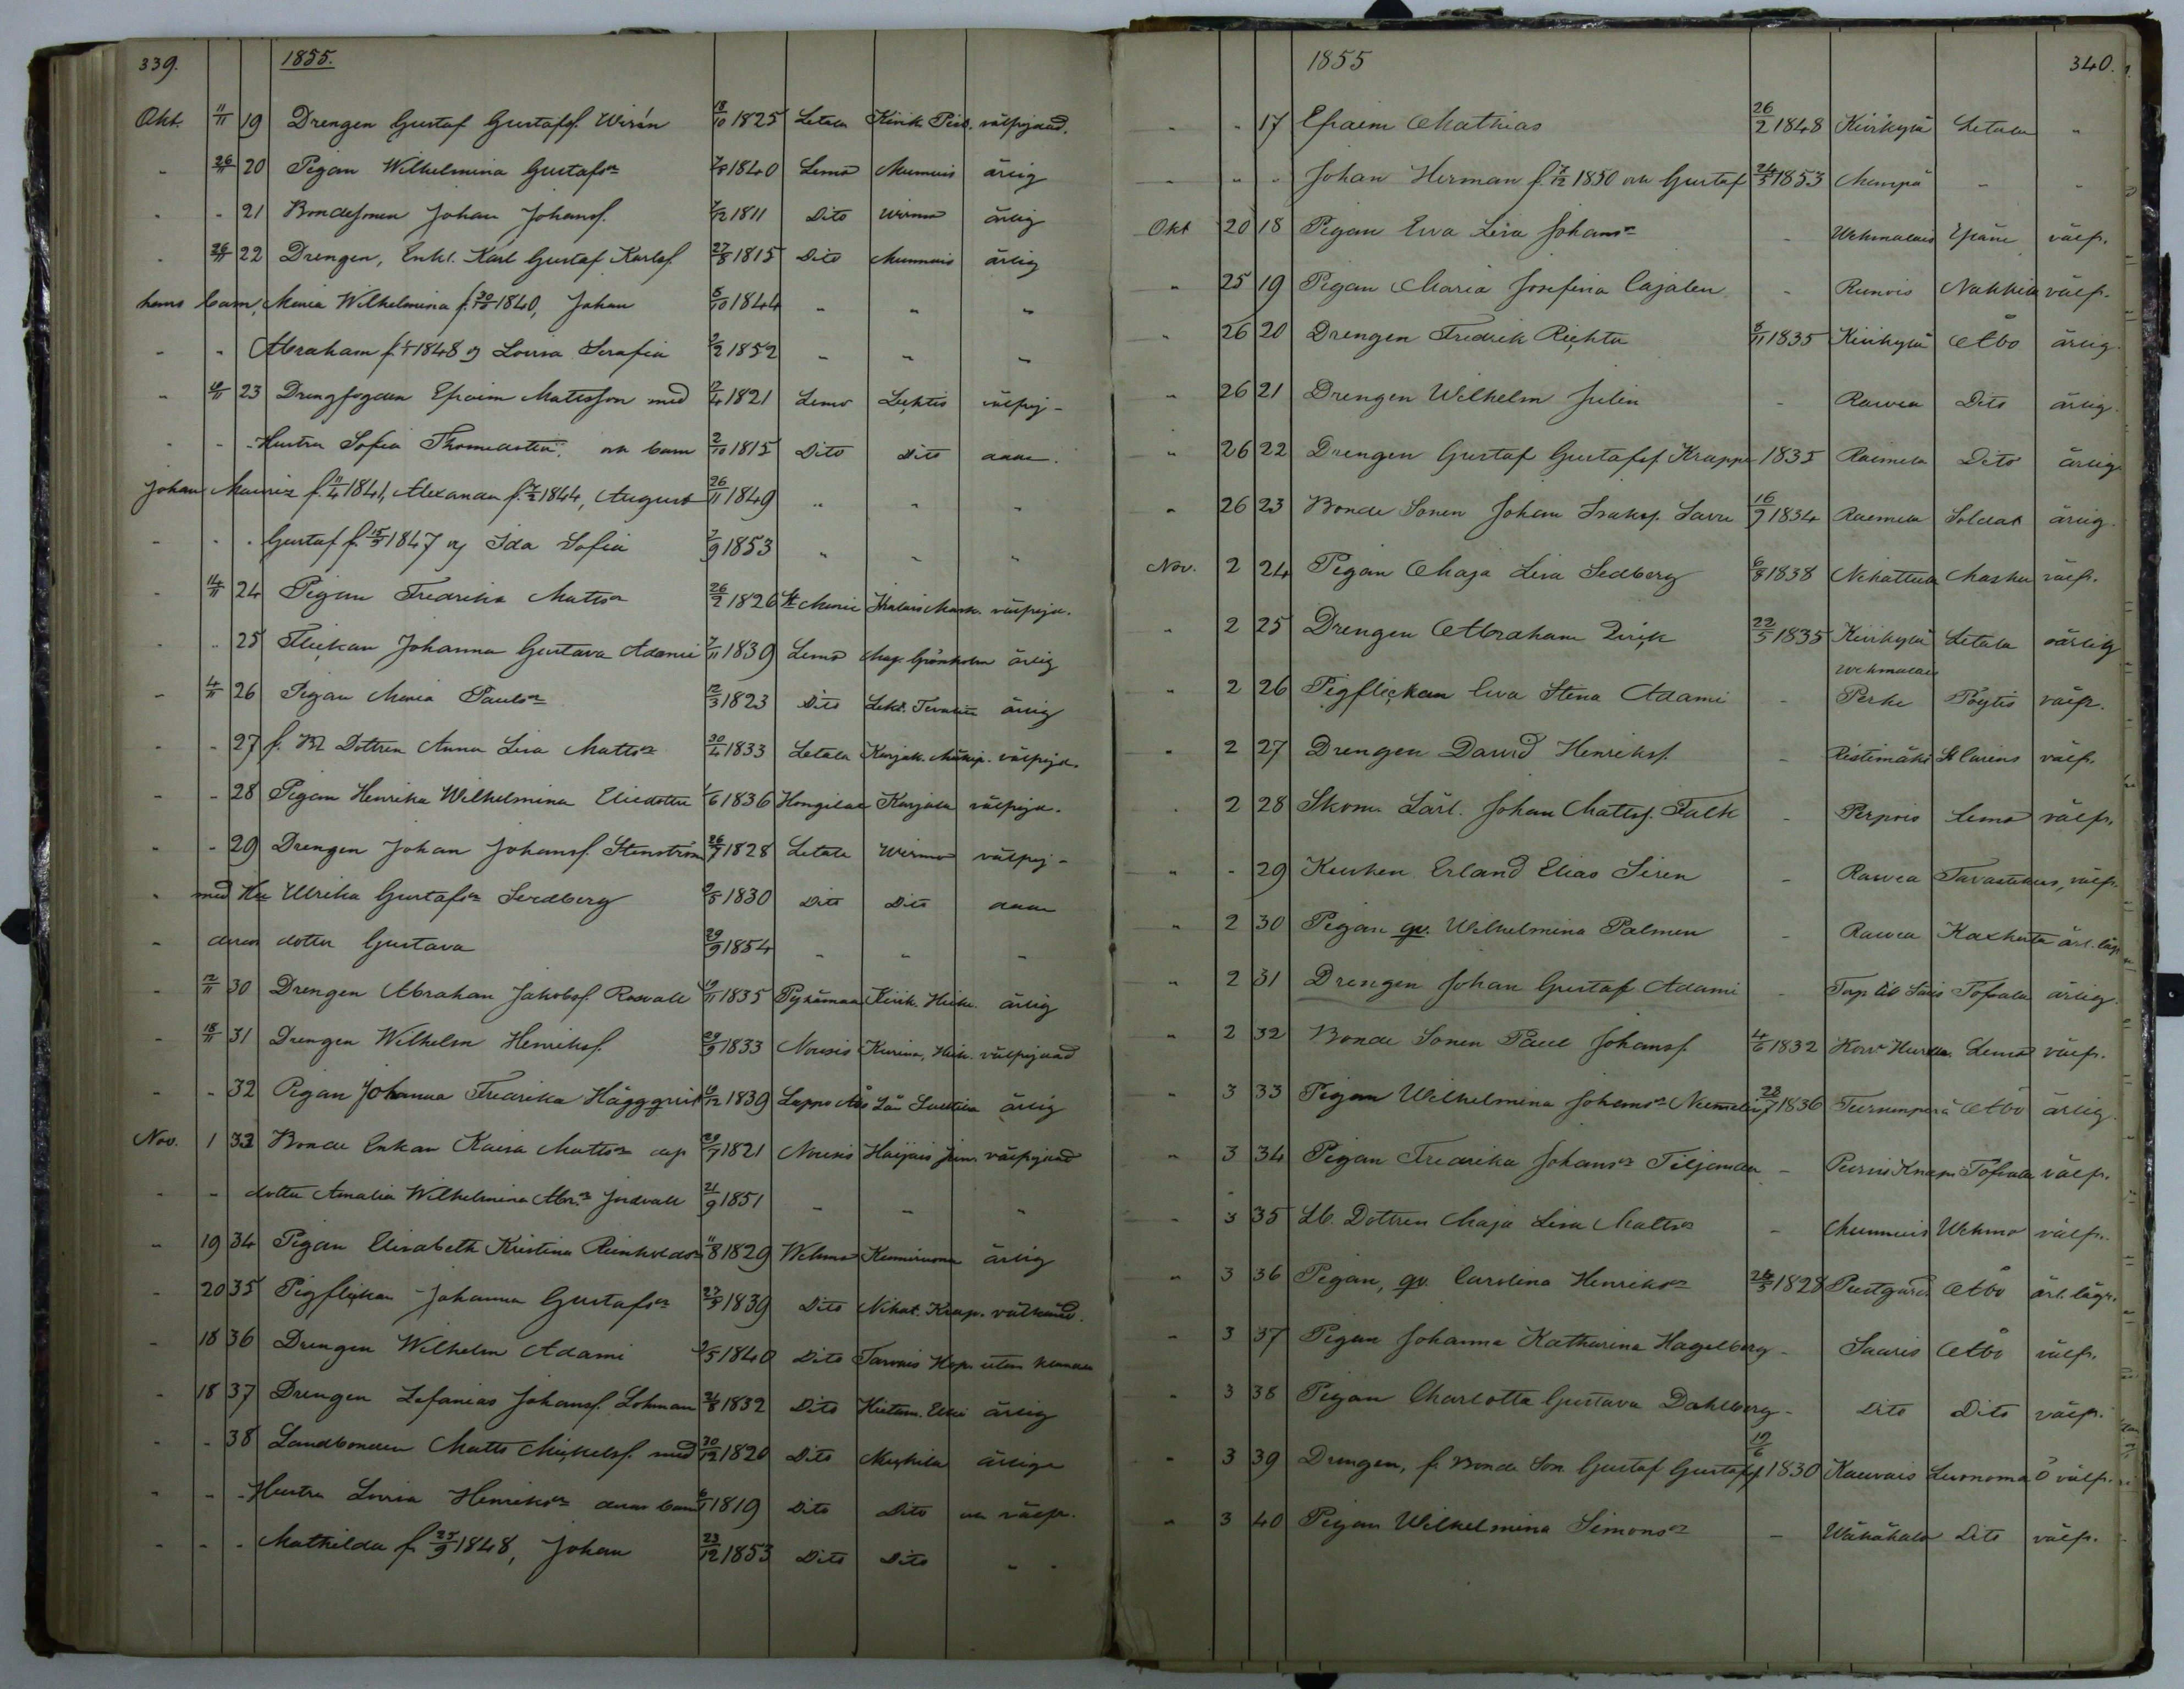 339. 1855.
Okt. 11/11 19 Drengen Gustaf Gustafsf. Wirén 18/10 1825 Letala Kirik. välfrejdad.
" 26/11 20 Pigan Wilhelmina Gustafsr 7/8 1840 Lemo Mumuis ärlig
" " 21 Bondesonen Johan Johansf. 7/12 1811 Dito Wirmo ärlig
" 26/11 22 Drengen, Enkl. Karl Gustaf Karlsf. 27/8 1815 Dito Munnuis ärlig
hans barn, Maria Wilhelmina f. 1840, Johan 5/10 1844 " " "
" " Abraham f. 1848 og Lovisa Serafia 2/2 1852 " " "
" 23 Drengfogden Efraim Matsson med 2/4 1821 Lemo välfrej-
" " Hustru Sofia Thomedotter och barn 2/10 1815 Dito Dito
Johan Mauriz f. 11/4 1841, Alexander f. 1844, August 26/11 1849 " " "
" " Gustaf f. 15/3 1847 og Ida Sofia 7/9 1853 " " "
" 14/11 24 Pigan Fredrika Mattsr 26/2 1826 St Marie välfrejd.
" " 25 Flickan Johanna Gustava Adami 7/11 1839 Lemo Grönholm ärlig
" 4/11 26 Pigan Maria Paulsr 12/3 1823 Dito ärlig
" " 27 f. Bd Dottren Anna Lisa Mattsr 30/4 1833 Letala Karjak. välfrejd.
" " 28 Pigan Henrika Wilhelmina Eliedotter 1/6 1836 Karjala välfrejd.
" " 29 Drengen Johan Johansf. Stenström 26/7 1828 Letala Wirmo välfrej-
" med Hu Ulrika Gustafsr Serdberg 9/5 1830 Dito Dito
" deras dotter Gustava 29/9 1854 " " "
" 12/11 30 Drengen Abraham Jakobsf. Rosvall 19/11 1835 Pyhämaa Kirik. ärlig
" 18/11 31 Drengen Wilhelm Henriksf. 29/9 1833 Nousis välfrejdad
" " 32 Pigan Johanna Fredrika Häggqvist 19/12 1839 Län ärlig
Nov. 1 33 Bonde Enkan Kaisa Mattsr 29/7 1821 Nousis Haijais välfrejdad
" " dotter Amalia Wilhelmina Abr.r Jordvall 21/9 1851 " " "
" 19 34 Pigan Elisabeth Kristina Reinholdsr 11/8 1829 Wehmo ärlig
" 20 35 Pigflickan Johanna Gustafsr 27/5 1839 Dito Nihat. Krap. välkänd.
" 18 36 Drengen Wilhelm Adami 2/5 1840 Dito Tarvais
" 18 37 Drengen Zefanias Johansf. Lohman 24/8 1832 Dito ärlig
" " 38 Landbonden Matts Mickelsf. med 30/12 1820 Dito ärliga
" " Hustru Lovisa Henriksr deras barn 6/1 1819 Dito Dito och välfr.
" " " Mathilda f. 25/9 1848, Johan 23/12 1853 Dito Dito " "
1855 340.
" " 17 Efraim Mathias 26/2 1848 Kirikylä Letala "
" " " Johan Herman f. 7/12 1850 och Gustaf 24/5 1853 " "
Okt 20 18 Pigan Eva Lisa Johansr - Wehmalais Ypäne välfr.
" 25 19 Pigan Maria Josefina Cajalen - Runois Nakkila välfr.
" 26 20 Drengen Fredrik Richter 5/11 1835 Kirikylä Åbo ärlig.
" 26 21 Drengen Wilhelm Julin - Rawea Dito ärlig.
" 26 22 Drengen Gustaf Gustafsf. Krappe 1835 Raimela Dito ärlig
" 26 23 Bonde Sonen Johan Isaksf. Savu 16/9 1834 Raimela Soldat ärlig.
Nov. 2 24 Pigan Maja Lisa Sedberg 6/8 1838 Nihattula Masku välfr.
" 2 25 Drengen Abraham 22/5 1835 Kirikylä Letala oärlig
Wehmalais
" 2 26 Pigflickan Eva Stena Adami - Perhe Pöytis välfr.
" 2 27 Drengen David Henriksf. - Ristimäki St Carins välfr.
" 2 28 Skom. Lärl. Johan Mattsf. Falk - Perpois Lemo välfr.
" - 29 Kusken Erland Elias Siren - Rawea Tavastehus, välfr.
" 2 30 Pigan qv. Wilhelmina Palmen - Rawea Kaxkerta ärl. lägr.
" 2 31 Drengen Johan Gustaf Adami - Tofsala ärlig.
" 2 32 Bonde Sonen Paul Johansf. 4/6 1832 Lemo välfr.
" 3 33 Pigan Wilhelmina Johansr Niemelin 23/7 1836 Åbo ärlig.
" 3 34 Pigan Fredrika Johansr Tiljander - Tofsala välfr.
" 3 35 Lb. Dottren Maja Lisa Mattsr - Munnuis Wehmo välfr.
" 3 36 Pigan, qv. Carolina Henriksr 26/5 1828 Prestgård Åbo ärl. lägr.
" 3 37 Pigan Johanna Katharina Hagelberg - Sauris Åbo välfr.
" 3 38 Pigan Charlotta Gustava Dahlberg - Dito Dito välfr.
" 3 39 Drengen, f. Bonde Son Gustaf Gustafsf. 19/6 1830 Kauvais Luonoma ö välfr.
" 3 40 Pigan Wilhelmina Simonsr - Dito välfr.